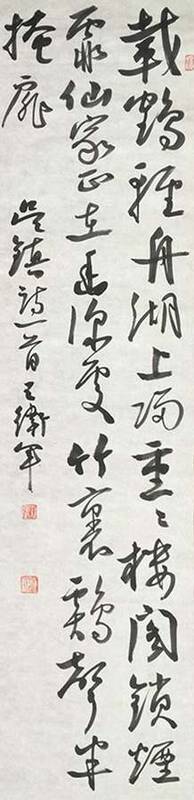 載鶴輕舟湖上歸重〻樓閣鎖煙
霏仙家正在幽深處竹裏鷄聲半
掩扉
吳鎮詩一首王衛軍